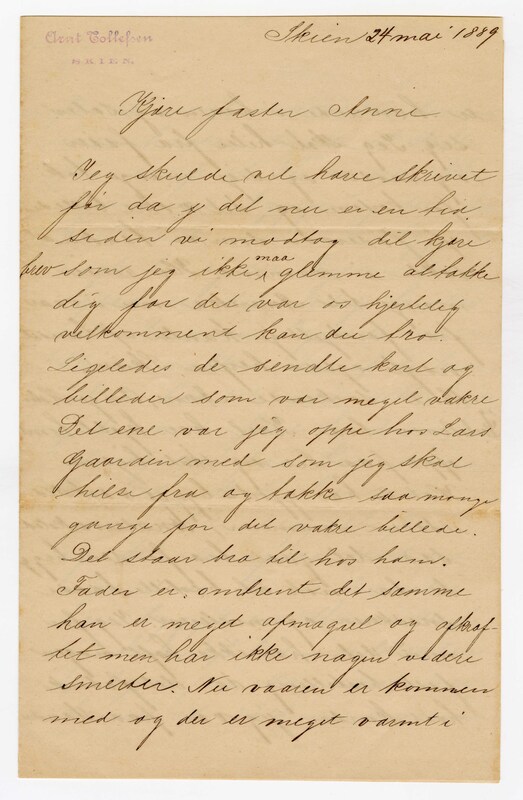 Arnt Tollefsen
SKIEN.
Skien 24 mai 1889
Kjære faster Anne
Jeg skulde vel have skrivet
før da y det nu er en tid
siden vi modtog dit kjære
brev som jeg ikke maa glemme at takke
dig for det var os hjertelig
velkomment kan du tro.
Ligeledes de sendte kort og
billeder som var meget vakre
Det ene var jeg oppe hos Lars
Gaarden med som jeg skal
hilse fra og takke saa mange
gange for det vakre billede.
Det staar bra til hos ham.
Fader er omtrent det samme
han er meget afmagret og afkræf-
tet men har ikke nogen videre
smerter. Nu vaaren er kommen
med og der er meget varmt i